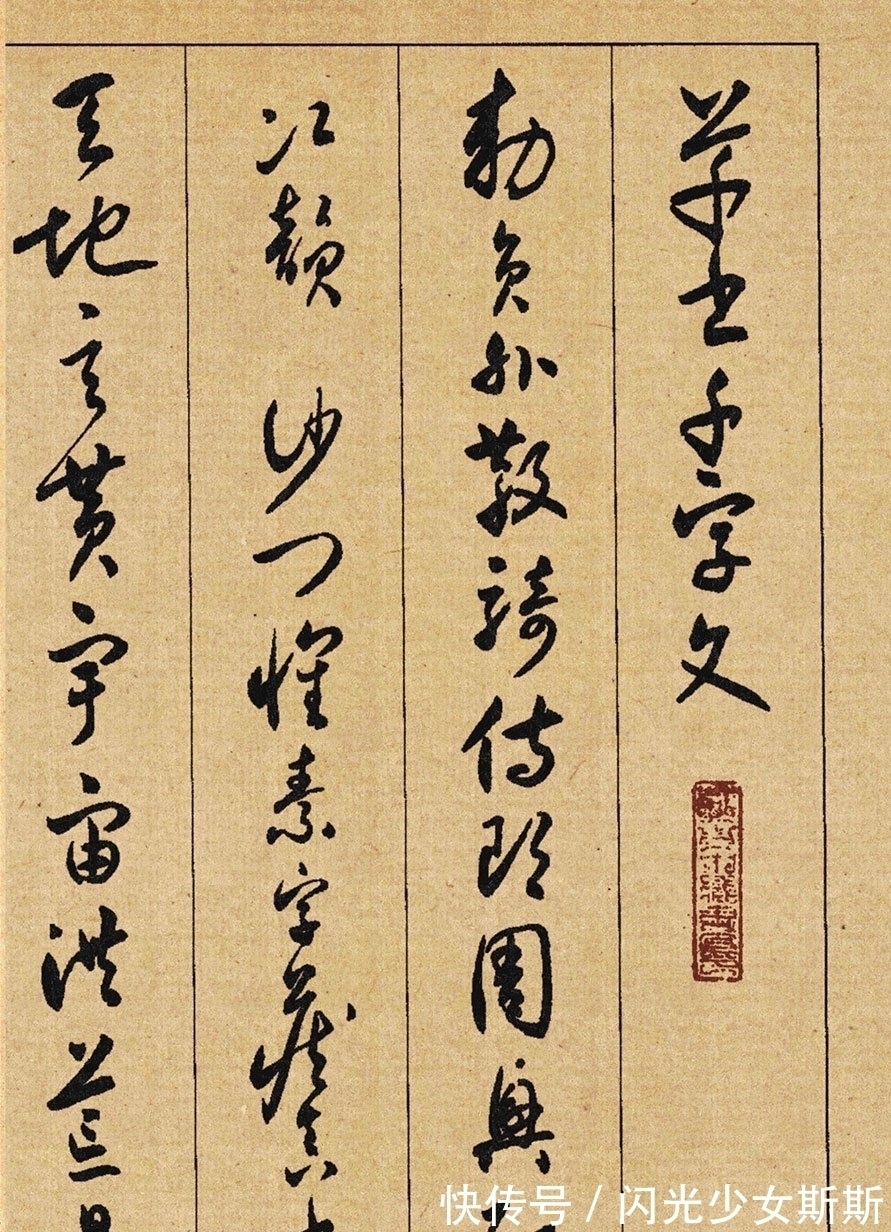 草书千字文
勅员外散骑侍郎周興
次韻 沙门懷素字藏真
天地玄黄宇宙洪荒日
快传号 / 闪光少女斯斯